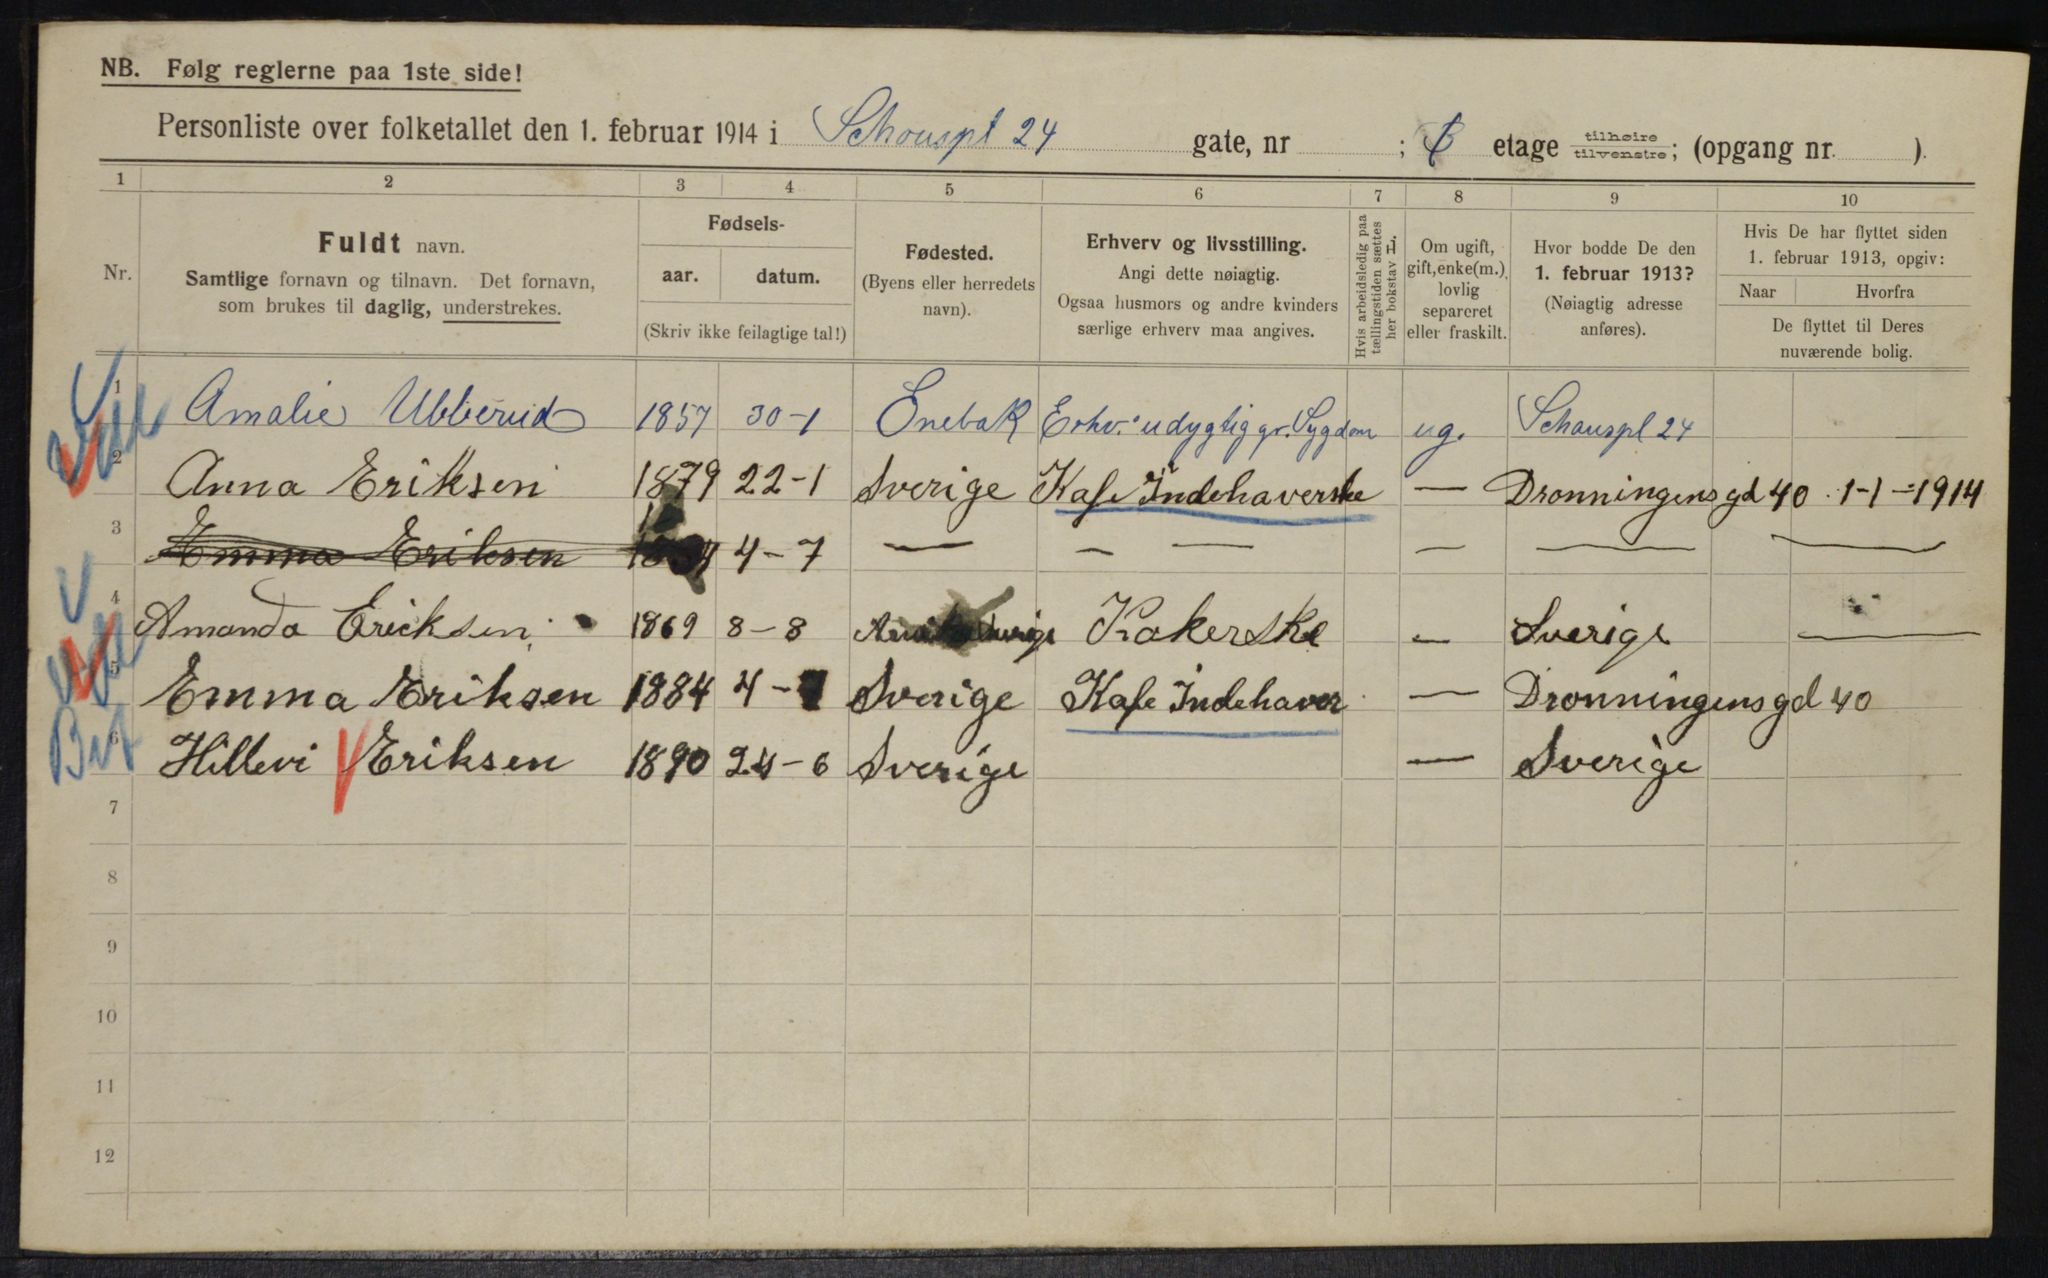 NB. Følg reglerne paa 1ste side!
Personliste over folketallet den 1. februar 1914 i Schouspl 24 gate, nr ; etage tilhøire tilvenstre; (opgang nr. ).
1 2 3 4 5 6 7 8 9 10
Nr.
Fuldt navn.
Samtlige fornavn og tilnavn. Det fornavn,
som brukes til daglig, understrekes.
Fødsels-
aar. datum.
(Skriv ikke feilagtige tal!)
Fødested.
(Byens eller herredets
navn).
Erhverv og livsstilling.
Angi dette nøiagtig.
Ogsaa husmors og andre kvinders
særlige erhverv maa angives.
Hvis arbeidsledig paa
tællingstiden sættes
her bokstav L.
Om ugift,
gift, enke(m.),
lovlig
separeret
eller fraskilt.
Hvor bodde De den
1. februar 1913?
(Nøiagtig adresse
anføres).
Hvis De har flyttet siden
1. februar 1913, opgiv:
Naar Hvorfra
De flyttet til Deres
nuværende bolig.
1 Amalie Ubberud 1857 30-1 Enebak Erhv. udygtig gr. Sygdom ug. Schouspl 24
2 Anna Eriksen 1879 22-1 Sverige Kafe Indehaverske — Dronningensgd 40 1-1-1914
3 Emma Eriksen 1884 4-7 — — — — — —
4 Amanda Ericksen 1869 8-8 Sverige Kokerske — Sverige —
5 Emma Eriksen 1884 4-7 Sverige Kafe Indehaver — Dronningensgd 40
6 Hillevi Eriksen 1890 24-6 Sverige — Sverige
7
8
9
10
11
12